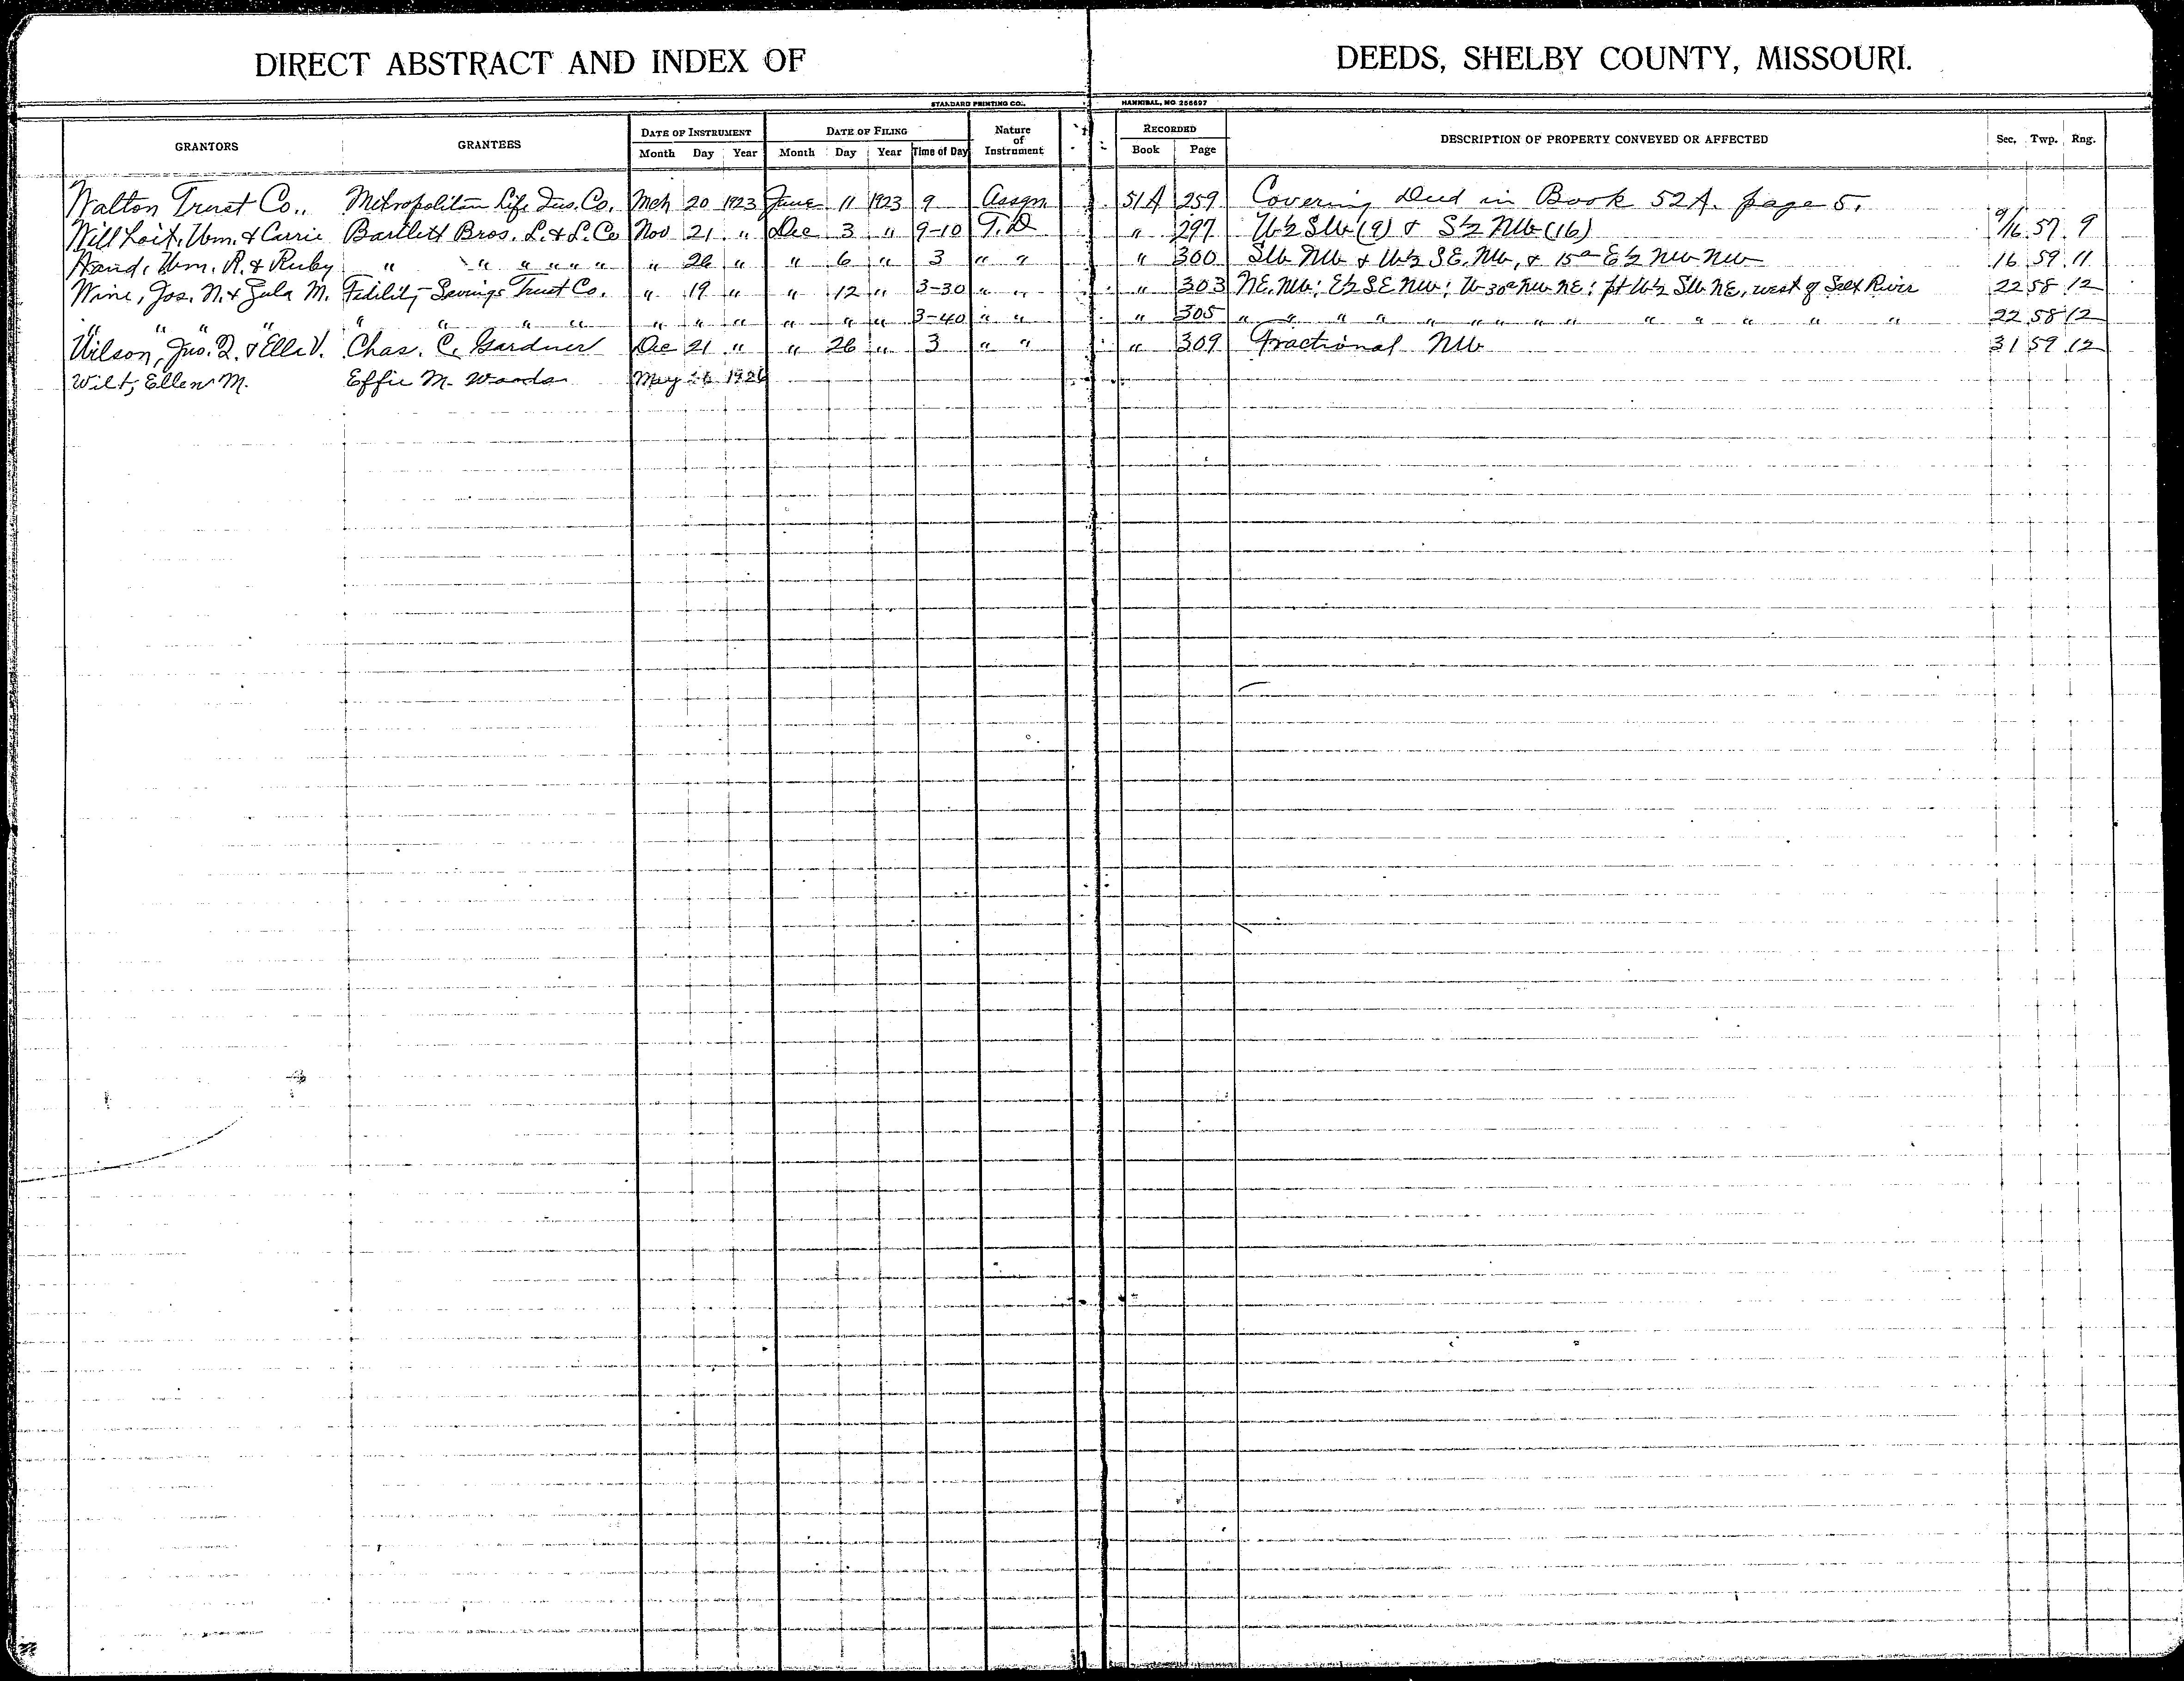 DIRECT ABSTRACT AND INDEX OF DEEDS, SHELBY COUNTY, MISSOURI.
STANDARD PRINTING CO., HANNIBAL, MO 256697
GRANTORS GRANTEES DATE OF INSTRUMENT Month Day Year DATE OF FILING Month Day Year Time of Day Nature of Instrument RECORDED Book Page DESCRIPTION OF PROPERTY CONVEYED OR AFFECTED Sec. Twp. Rng.
Walton Trust Co., Metropolitan Life Ins. Co. Mch 20 1923 June 11 1923 9 Assgn 51A 259 Covering Deed in Book 52A. page 5.
Willhoit, Wm. & Carrie Bartlett Bros. L. & L. Co Nov 21 " Dec 3 " 9-10 T.D " 297 W½ SW (9) & S½ NW (16) 9/16 57 9
Wm. R. & Ruby " " " " " " " 26 " " 6 " 3 " " " 300 SW NW & W½ SE, NW, & 15a E½ NW NW 16 59 11
Wine, Jos. N. & Zula M. Fidelity Savings Trust Co. " 19 " " 12 " 3-30 " " " 303 NE, NW; E½ SE NW; W 30a NW NE; pt W½ SW NE, west of Salt River 22 58 12
" " " " " " " " " " " " " " 3-40 " " " 305 " " " " " " " " " " " " " " 22 58 12
Wilson, Jno. Q. & Ella V. Chas. C. Gardner Dec 21 " " 26 " 3 " " " 309 Fractional NW 31 59 12
Wilt, Ellen M. Effie M. Woods May 1926